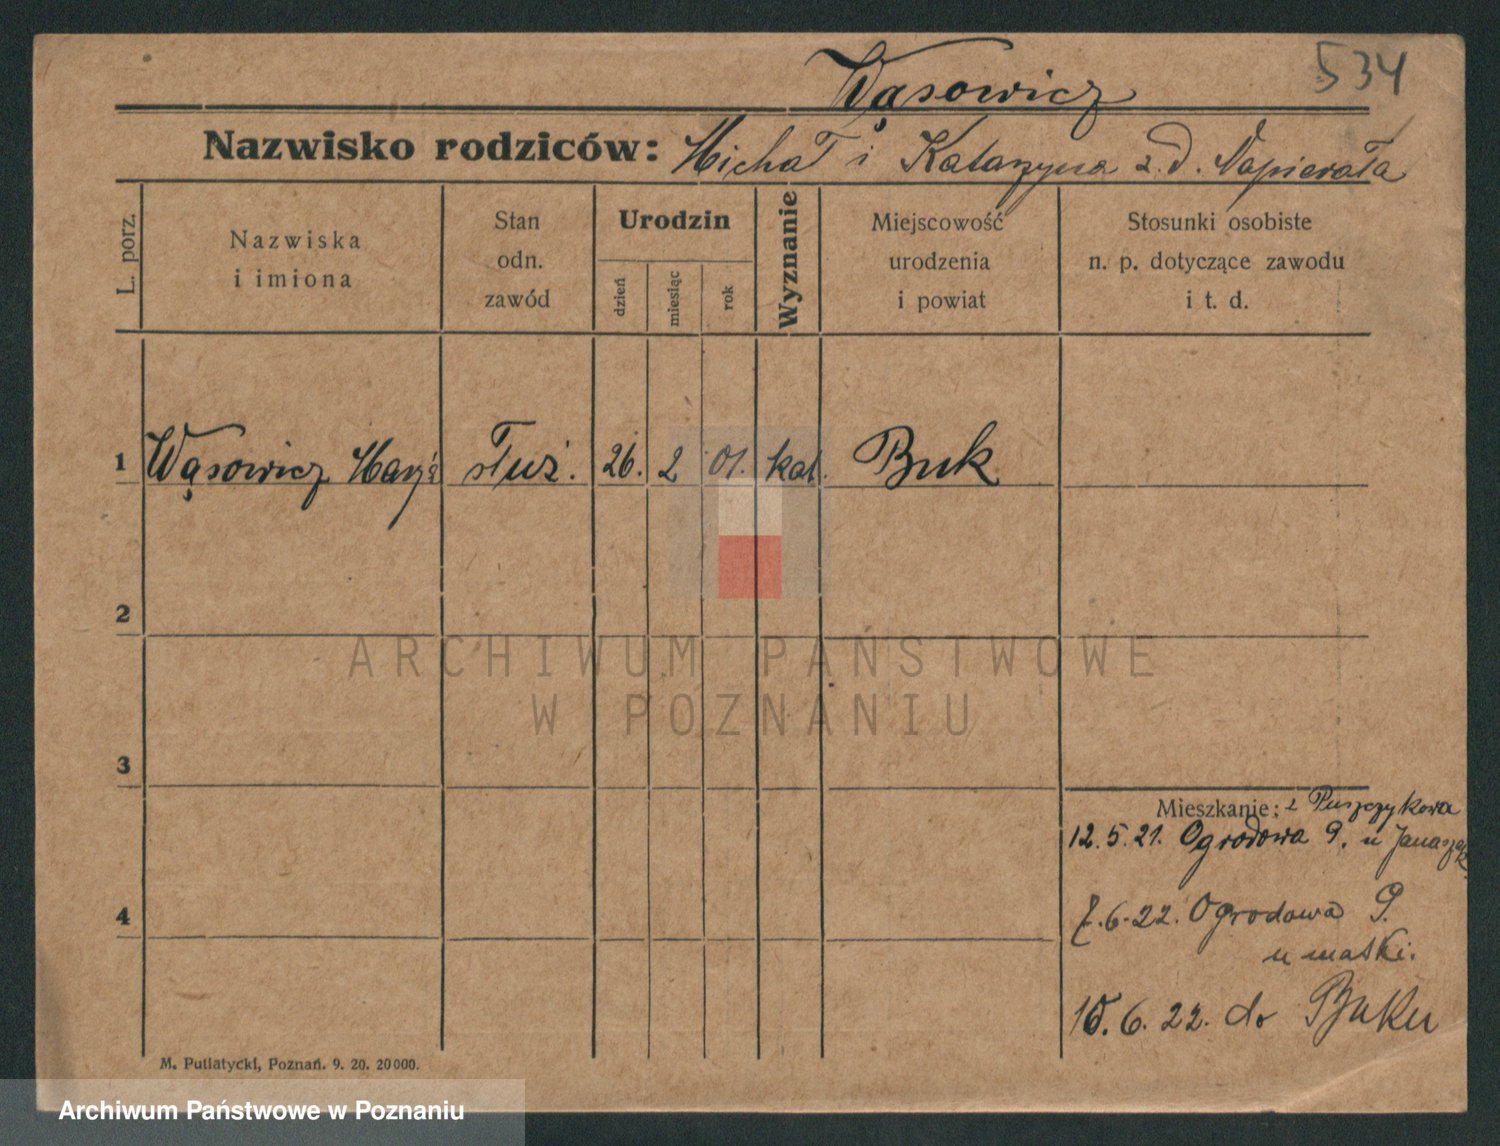 534
Wąsowicz
Nazwisko rodziców: Michał i Katarzyna z d. Napierała
L. porz.
Nazwiska
i imiona
Stan
odn.
zawód
Urodzin
dzień
miesiąc
rok
Wyznanie
Miejscowość
urodzenia
i powiat
Stosunki osobiste
n. p. dotyczące zawodu
i t. d.
1 Wąsowicz Marja służ. 26. 2 01. kat. Buk
2
3
4
Mieszkanie: z Puszczykowa
12.5.21. Ogrodowa 9. u
7.6.22. Ogrodowa 9.
u matki.
10.6.22. do Buku
M. Putiatycki, Poznań. 9. 20. 20000.
ARCHIWUM PAŃSTWOWE
W POZNANIU
Archiwum Państwowe w Poznaniu